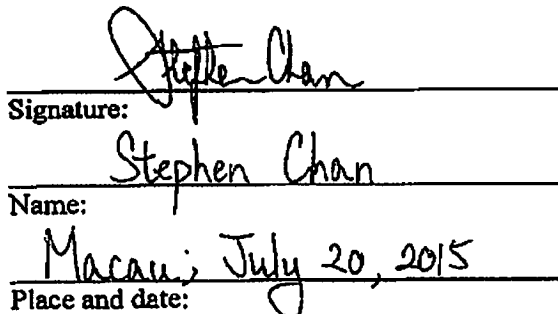 Stephen Chan
Signature:
Stephen Chan
Name:
Macau; July 20, 2015
Place and date: